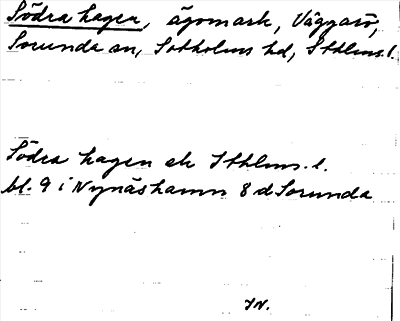 Södra hagen, ägomark, Väggarö,
Sorunda sn, Sotholms hd, Sthlms l.
Södra hagen ek Sthlms. l.
bl. 9 i Nynäshamn 8 d Sorunda
IN.